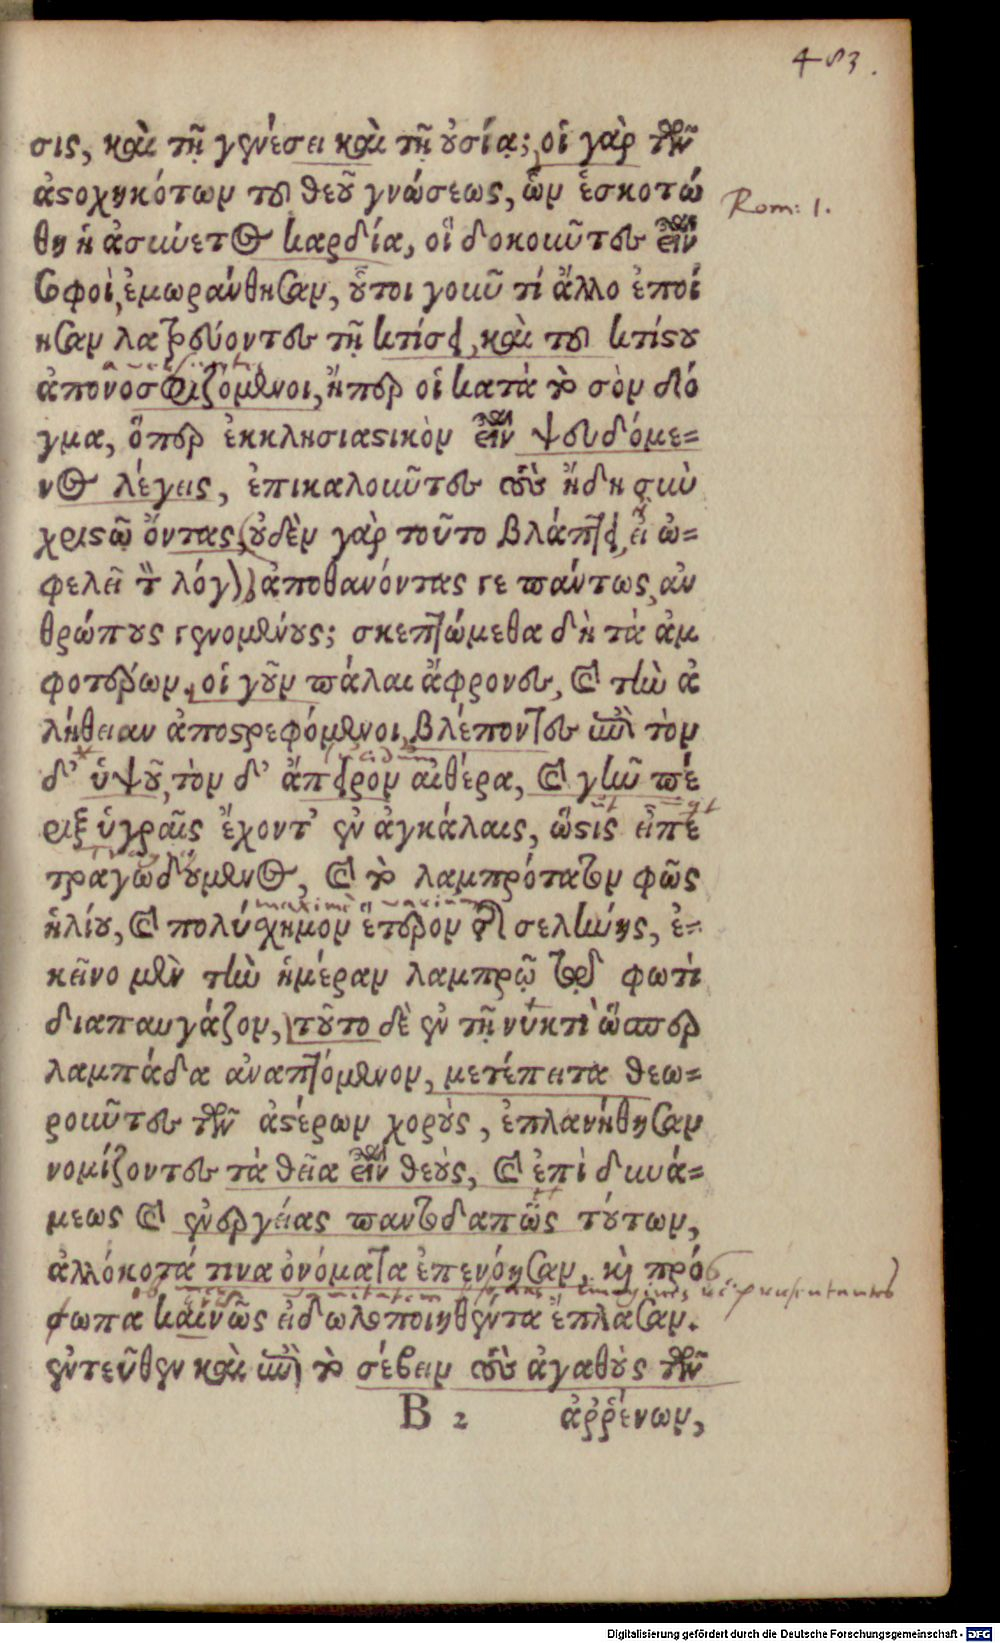 483.
σις, καὶ τῇ γενέσει καὶ τῇ οὐσίᾳ; οἱ γὰρ τῶν
ἀστοχηκότων τοῦ θεοῦ γνώσεως, ὧν ἐσκοτώ
Rom: 1.
θη ἡ ἀσύνετος καρδία, οἳ δοκοῦντες εἶναι
σοφοὶ, ἐμωράνθησαν, οὗτοι γοῦν τί ἄλλο ἐποί
ησαν λατρεύοντες τῇ κτίσει, καὶ τοῦ κτίστου
ἀπονοσφιζόμενοι, ἤπερ οἱ κατὰ τὸ σὸν δό
γμα, ὅπερ ἐκκλησιαστικὸν εἶναι ψευδόμε=
νος λέγεις, ἐπικαλοῦντες τοὺς ἤδη σὺν
χριστῷ ὄντας (οὐδὲν γὰρ τοῦτο βλάπτει, εἰ ὠ=
φελεῖ τ λόγ) ἀποθανόντας γε πάντως, ἀν
θρώπους γενομένους; σκεπτώμεθα δὴ τὰ ἀμ
φοτέρων. οἱ γοῦν πάλαι ἄφρονες, καὶ τὴν ἀ
λήθειαν ἀποστρεφόμενοι, βλέποντες ἐπὶ τὸν
δ' ὑψοῦ, τὸν δ' ἄπειρον αἰθέρα, καὶ γῆν πέ
ριξ ὑγραῖς ἔχοντ' ἐν ἀγκάλαις, ὥστις εἶπε
τραγῳδούμενος, καὶ τὸ λαμπρότατον φῶς
ἡλίου, καὶ πολύσχημον ἕτερον τῆς σελήνης, ἐ=
κεῖνο μὲν τὴν ἡμέραν λαμπρῷ τῷδε φωτὶ
διαπαυγάζον, τοῦτο δὲ ἐν τῇ νυκτὶ ὥσπερ
λαμπάδα ἀναπτόμενον, μετέπειτα θεω=
ροῦντες τῶν ἀστέρων χοροὺς, ἐπλανήθησαν
νομίζοντες τὰ θεῖα εἶναι θεοὺς, καὶ ἐπὶ δυνά=
μεως καὶ ἐνεργείας παντοδαπῶς τούτων,
ἀλλόκοτά τινα ὀνόματα ἐπενόησαν, καὶ πρόσ
ωπα κενῶς εἰδωλοποιηθέντα ἔπλασαν.
ἐντεῦθεν καὶ ἐπὶ τὸ σέβειν τοὺς ἀγαθοὺς τῶν
B 2 ἀῤῥένων,
Digitalisierung gefördert durch die Deutsche Forschungsgemeinschaft - DFG